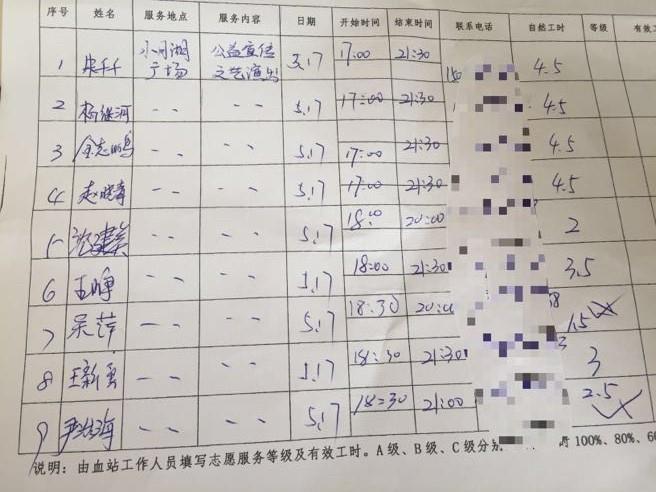 序号 姓名 服务地点 服务内容 日期 开始时间 结束时间 联系电话 自然工时 等级 有效工
1 朱千千 小河湖广场 公益宣传文艺演出 5.17 17:00 21:30 4.5
2 杨继河 -- -- 5.17 17:00 21:30 4.5
3 余志鹏 -- -- 5.17 17:00 21:30 4.5
4 赵晓春 -- -- 5.17 17:00 21:30 4.5
5 -- -- 5.17 18:00 20:00 2
6 王晖 -- -- 5.17 18:00 21:30 3.5
7 吴萍 -- -- 5.17 18:30 20:00 1.5
8 王新 -- -- 5.17 18:30 21:30 3
9 海 -- -- 5.17 18:30 21:00 2.5
说明：由血站工作人员填写志愿服务等级及有效工时。A级、B级、C级分别 100%、80%、60